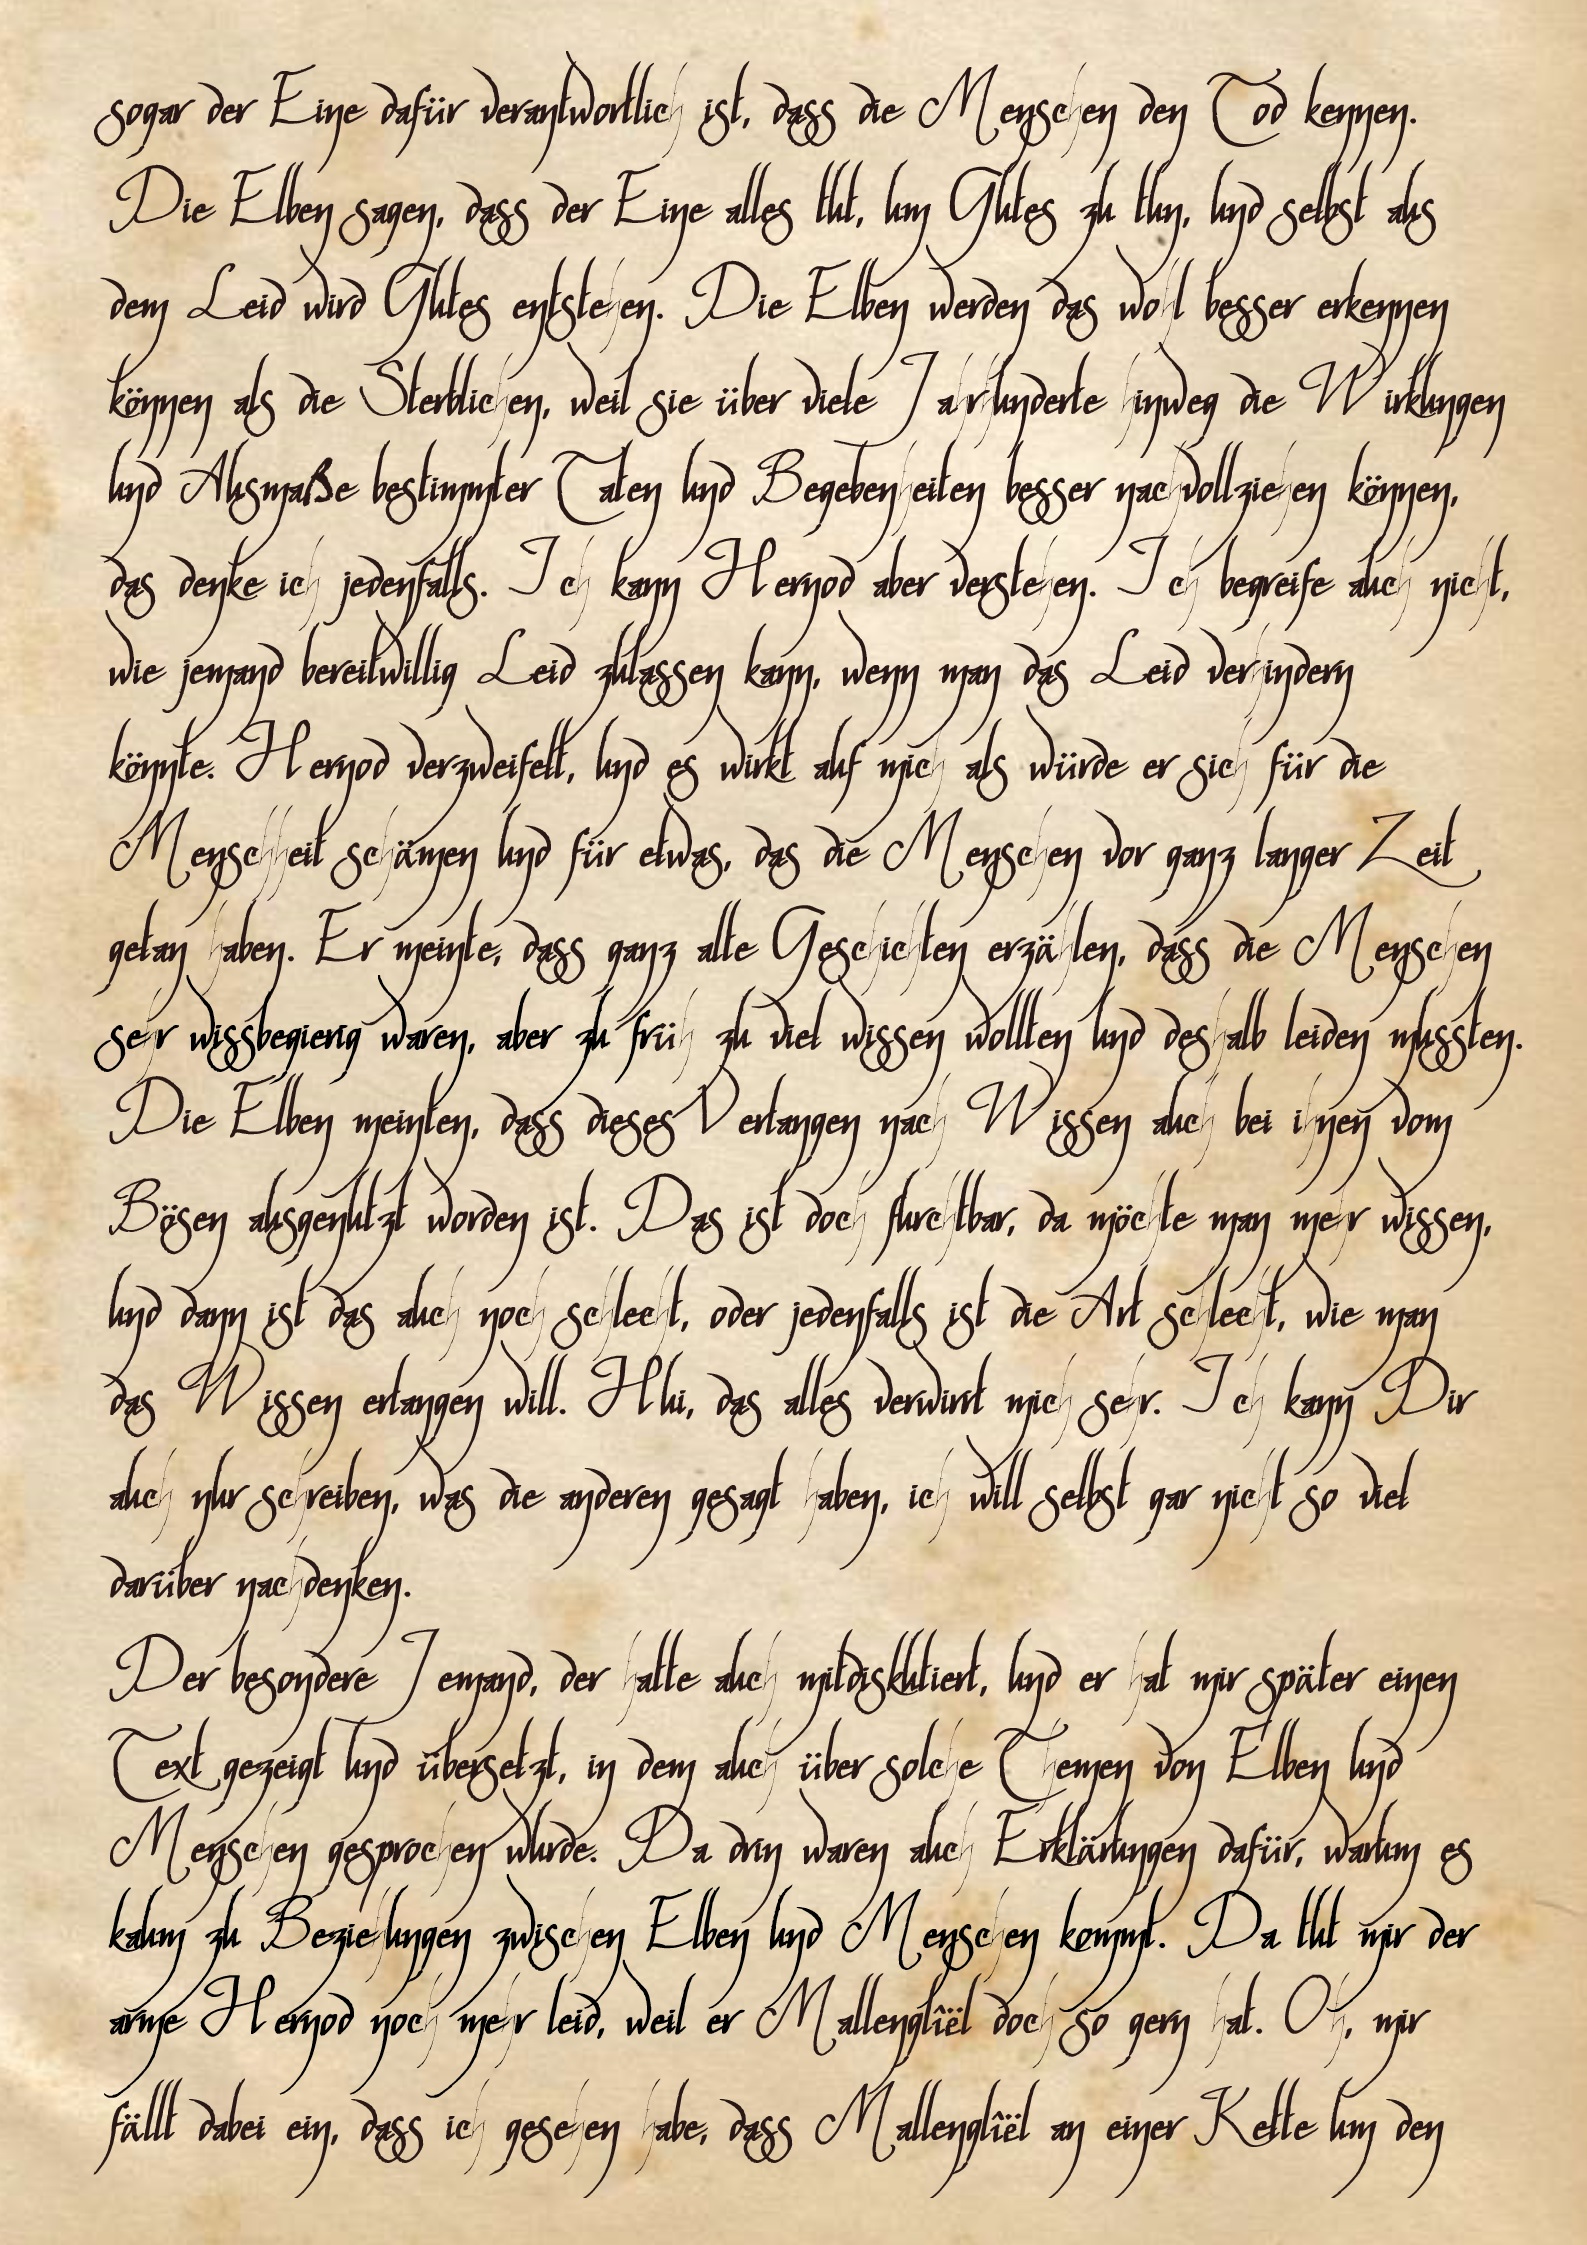 sogar der Eine dafür verantwortlich ist, dass die Menschen den Tod kennen.
Die Elben sagen, dass der Eine alles tut, um Gutes zu tun, und selbst aus
dem Leid wird Gutes entstehen. Die Elben werden das wohl besser erkennen
können als die Sterblichen, weil sie über viele Jahrhunderte hinweg die Wirkungen
und Ausmaße bestimmter Taten und Begebenheiten besser nachvollziehen können,
das denke ich jedenfalls. Ich kann Hernod aber verstehen. Ich begreife auch nicht,
wie jemand bereitwillig Leid zulassen kann, wenn man das Leid verhindern
könnte. Hernod verzweifelt, und es wirkt auf mich als würde er sich für die
Menschheit schämen und für etwas, das die Menschen vor ganz langer Zeit
getan haben. Er meinte, dass ganz alte Geschichten erzählen, dass die Menschen
sehr wissbegierig waren, aber zu früh zu viel wissen wollten und deshalb leiden mussten.
Die Elben meinten, dass dieses Verlangen nach Wissen auch bei ihnen vom
Bösen ausgenutzt worden ist. Das ist doch furchtbar, da möchte man mehr wissen,
und dann ist das auch noch schlecht, oder jedenfalls ist die Art schlecht, wie man
das Wissen erlangen will. Hui, das alles verwirrt mich sehr. Ich kann Dir
auch nur schreiben, was die anderen gesagt haben, ich will selbst gar nicht so viel
darüber nachdenken.
Der besondere Jemand, der hatte auch mitdiskutiert, und er hat mir später einen
Text gezeigt und übersetzt, in dem auch über solche Themen von Elben und
Menschen gesprochen wurde. Da drin waren auch Erklärungen dafür, warum es
kaum zu Beziehungen zwischen Elben und Menschen kommt. Da tut mir der
arme Hernod noch mehr leid, weil er Mallenglîël doch so gern hat. Oh, mir
fällt dabei ein, dass ich gesehen habe, dass Mallenglîël an einer Kette um den